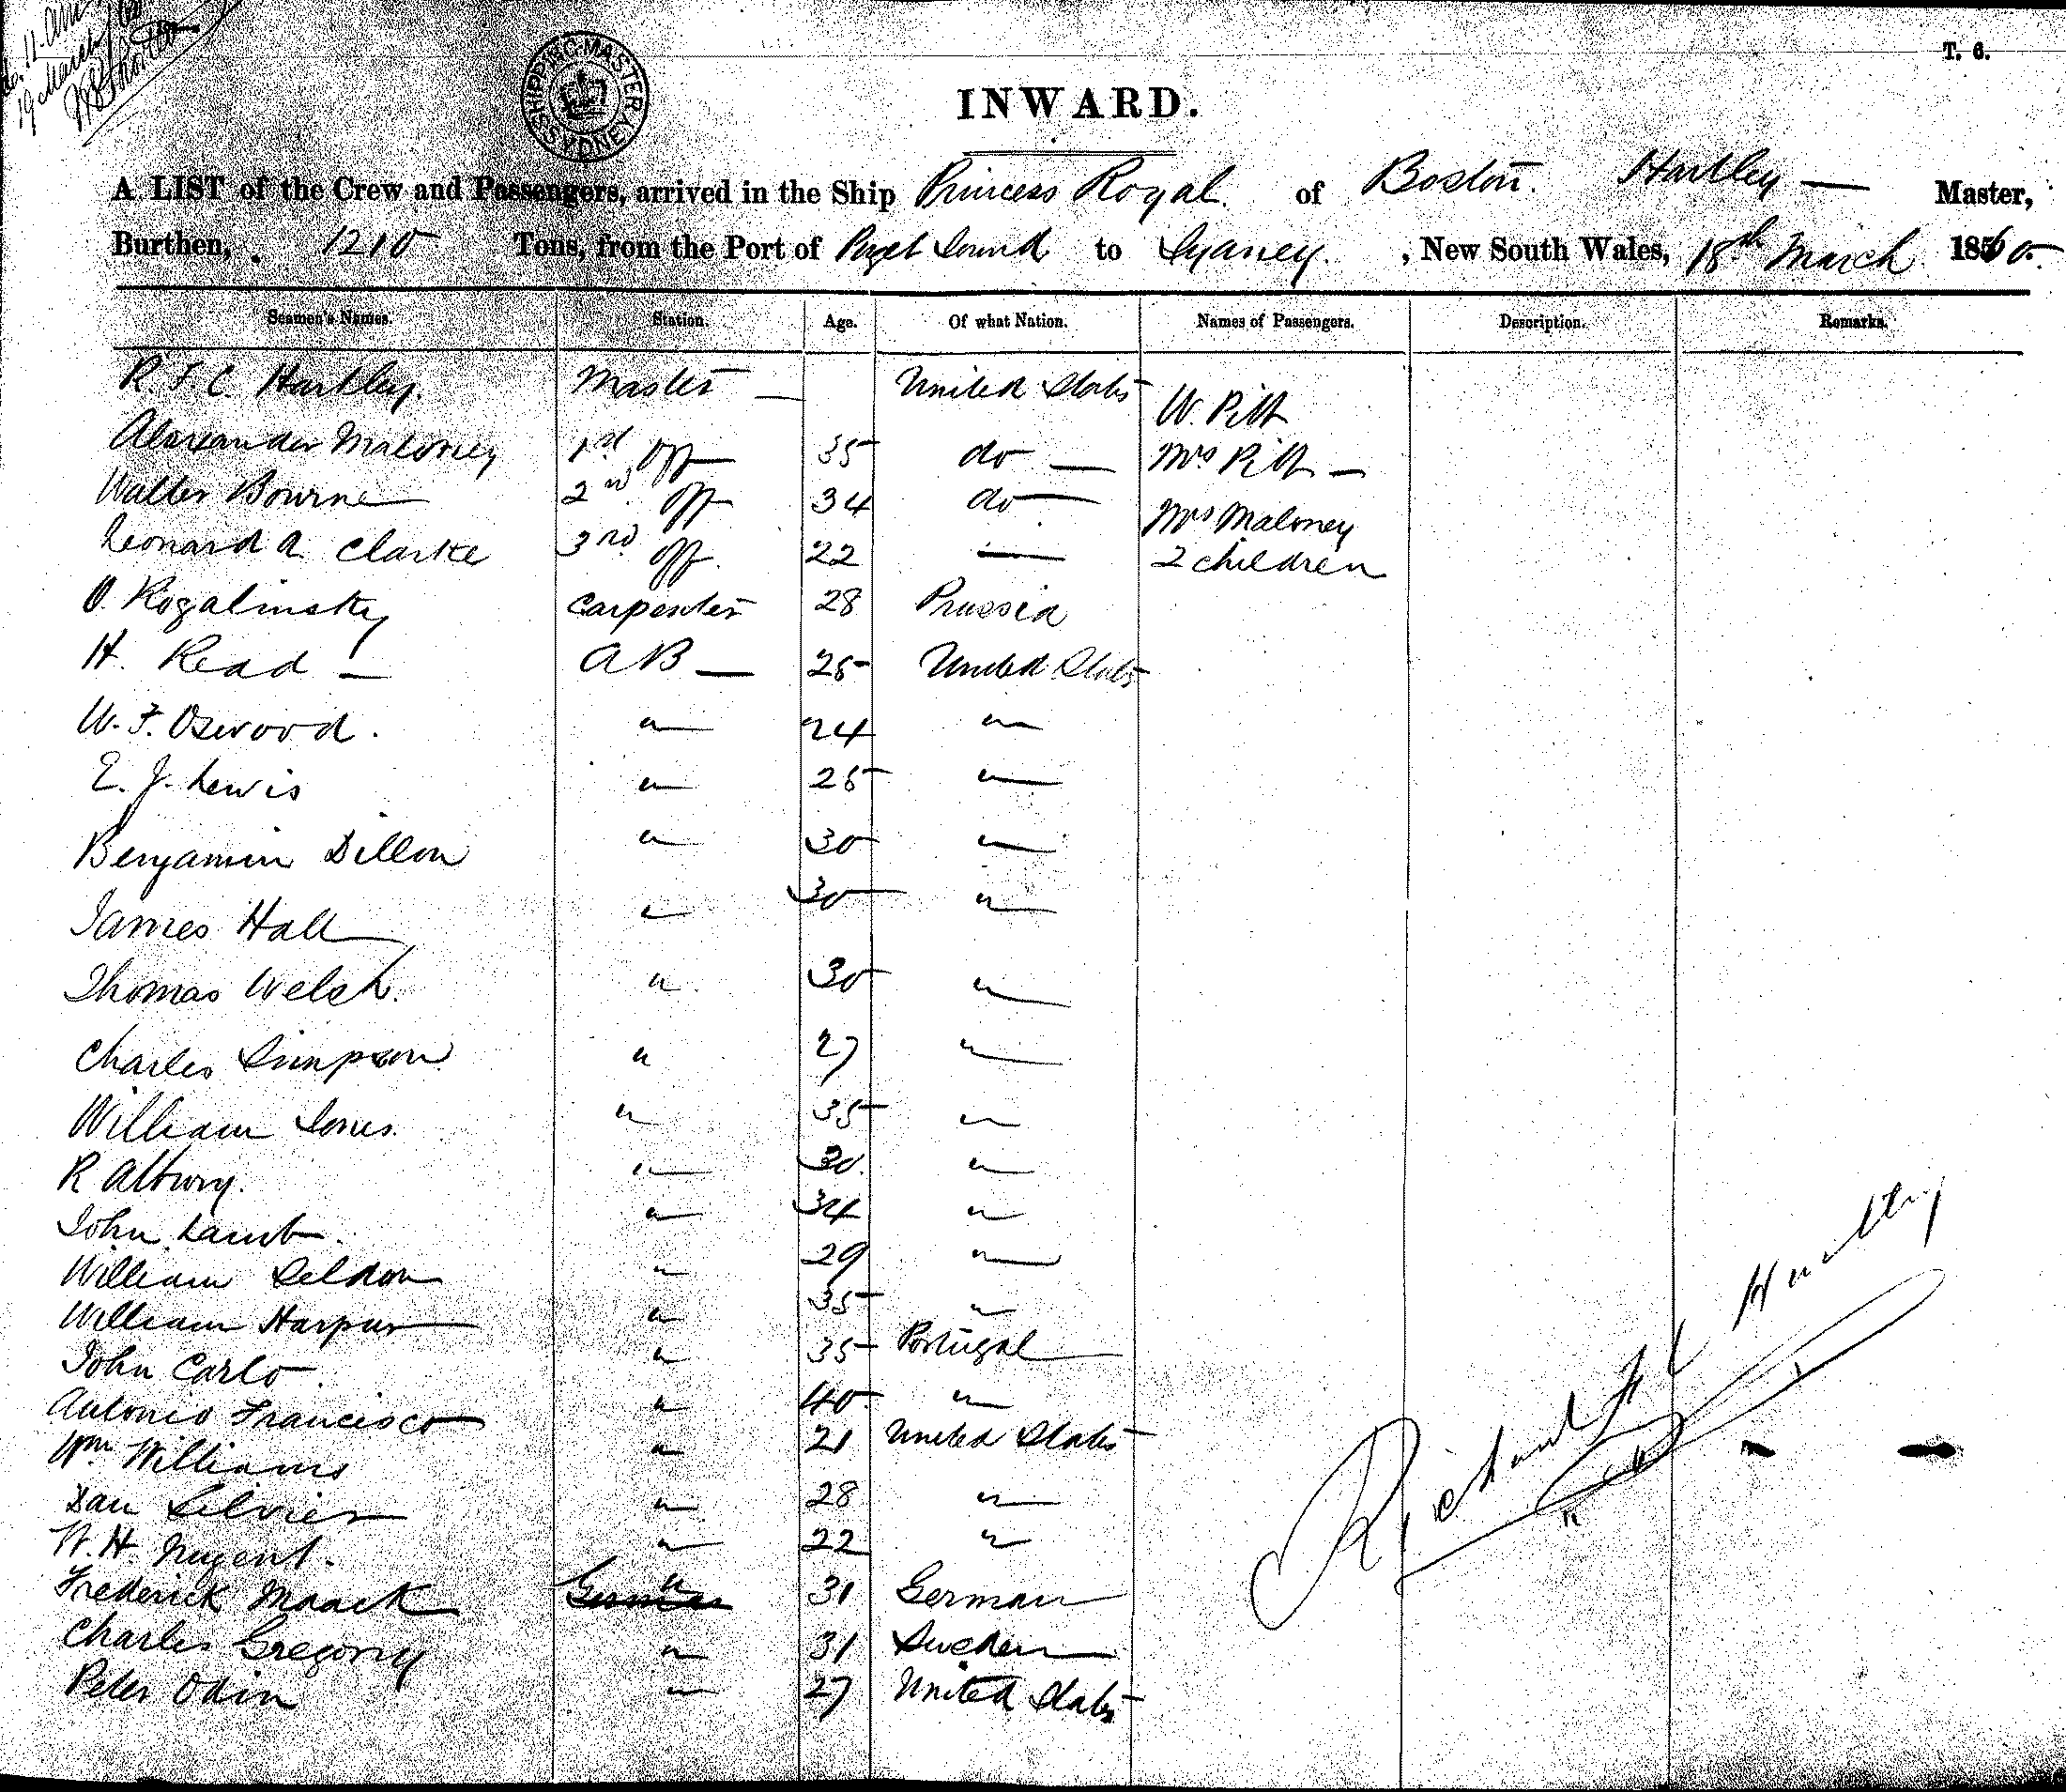 19 March
T. 6.
SHIPPING MASTER SYDNEY
INWARD.
A LIST of the Crew and Passengers, arrived in the Ship Princess Royal. of Boston. Hartley — Master,
Burthen, 1210 Tons, from the Port of Puget Sound to Sydney. , New South Wales, 18th March 1860.
Seamen's Names. Station. Age. Of what Nation. Names of Passengers. Description. Remarks.
Hartley. Master — United States W. Pitt
Alexander Maloney 1st Off 35 do — Mrs Pitt —
Walter Bourne 2nd Off 34 do — Mrs Maloney
Leonard A Clarke 3rd Off. 22 — 2 children
O. Rogalinsky Carpenter 28 Prussia
H. Read — AB — 25 United States
W. F. Oswood. " 24 "
E. J. Lewis " 25 "
Benjamin Dillon " 30 "
James Hall " 30 "
Thomas Welsh. " 30 "
Charles Simpson " 27 "
William Jones. " 35 "
R " 30. "
John Lamb. " 34 "
William Seldon " 29 "
William Harpur " 35 "
John Carlo. " 35 Portugal
Antonio Francisco " 40 "
Wm Williams " 21 United States
Dan " 28 "
W. H. Nugent. " 22 "
Frederick Maack German " 31 German
Charles Gregory " 31 Sweden
Peter Odin " 27 United States
Richard Hartley